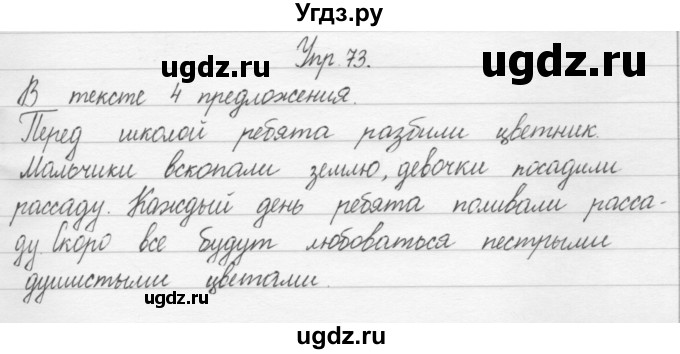 Угдз.ру
ugdz.ru ugdz.ru
Упр. 73.
В тексте 4 предложения.
Перед школой ребята разбили цветник.
Мальчики вскопали землю, девочки посадили
рассаду. Каждый день ребята поливали расса-
ду. Скоро все будут любоваться пестрыми
душистыми цветами.
ugdz.ru
ugdz.ru